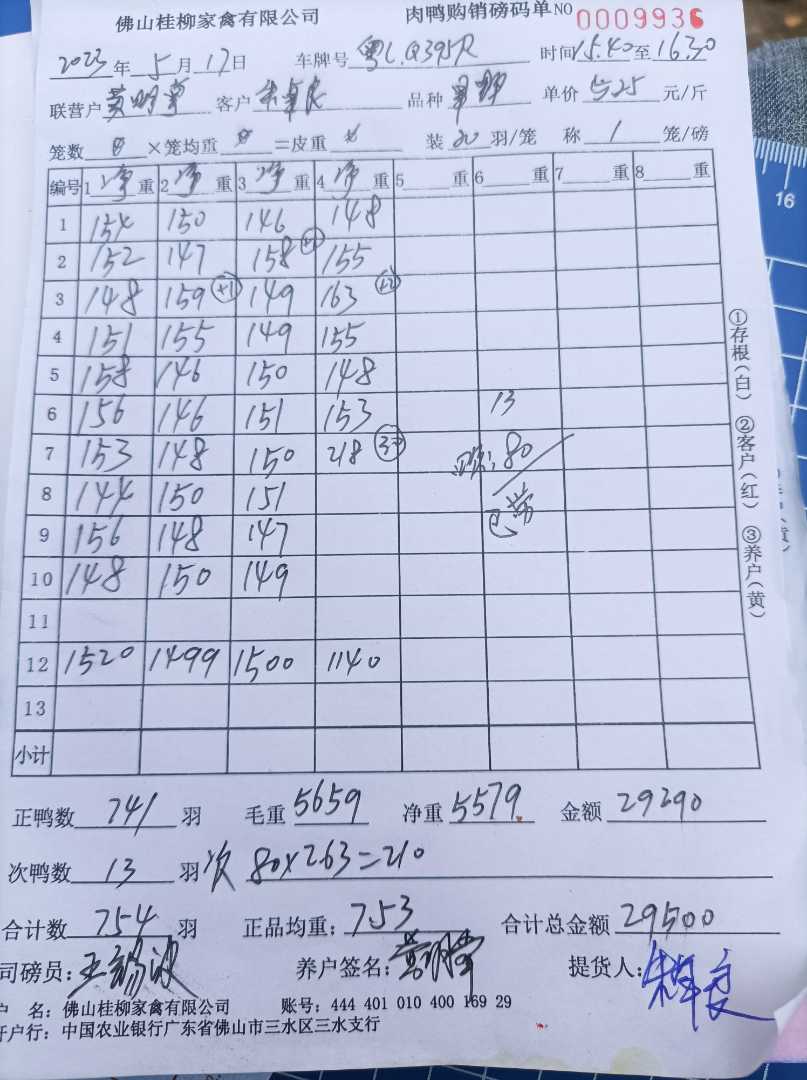 佛山桂柳家禽有限公司 肉鸭购销磅码单NO 0009936
2023年5月17日 车牌号粤L.Q395R 时间15.40至16.30
联营户黄明堂 客户朱卓良 品种 单价5.25元/斤
笼数0×笼均重0=皮重 装20羽/笼 称1笼/磅
编号 1净重 2净重 3净重 4净重 5重 6重 7重 8重
1 154 150 146 148
2 152 147 158 +1 155
3 148 159 +1 149 163 +2
4 151 155 149 155
5 158 146 150 148
6 156 146 151 153 13
7 153 148 150 218 80
8 144 150 151
9 156 148 147
10 148 150 149
11
12 1520 1499 1500 1140
13
小计
正鸭数741羽 毛重5659 净重5579 金额29290
次鸭数13羽 次 80×2.63=210
合计数754羽 正品均重:7.53 合计总金额29500
司磅员:王锡波 养户签名:黄明堂 提货人:朱卓良
户 名:佛山桂柳家禽有限公司 账号:444 401 010 400 169 29
开户行:中国农业银行广东省佛山市三水区三水支行
①存根(白) ②客户(红) ③养户(黄)
16